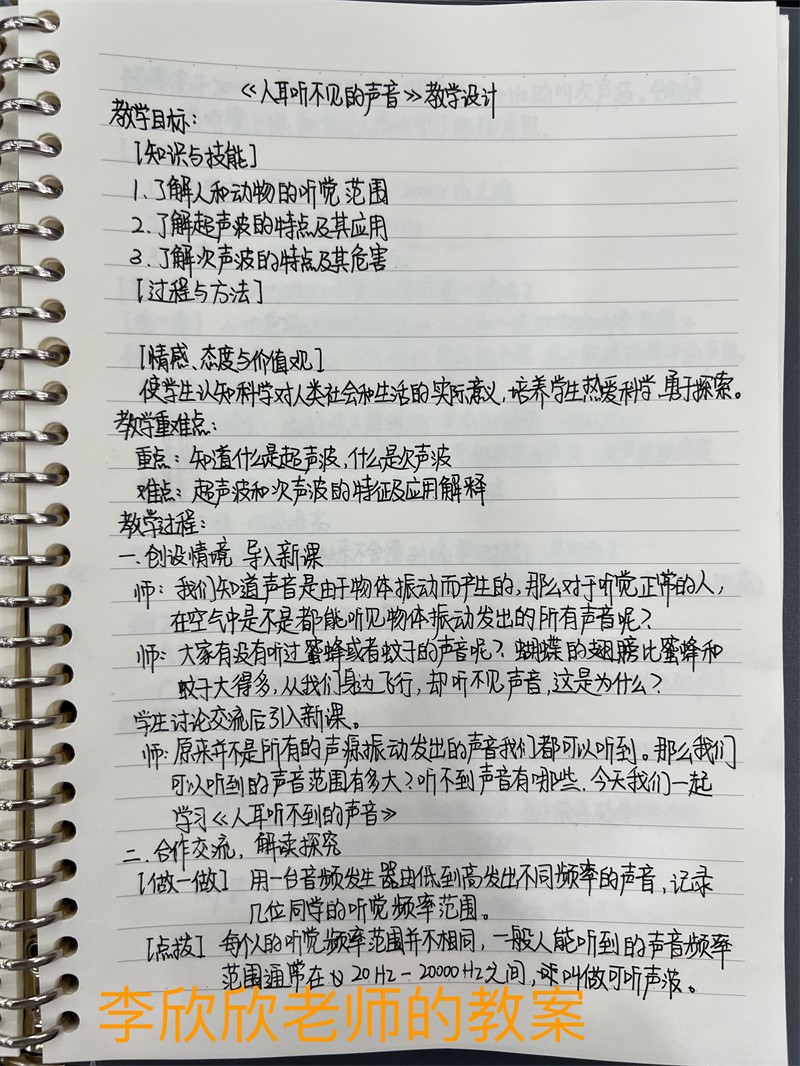 《人耳听不见的声音》教学设计
教学目标：
[知识与技能]
1.了解人和动物的听觉范围
2.了解超声波的特点及其应用
3.了解次声波的特点及其危害
[过程与方法]
[情感、态度与价值观]
使学生认知科学对人类社会和生活的实际意义，培养学生热爱科学、勇于探索。
教学重难点：
重点：知道什么是超声波，什么是次声波
难点：超声波和次声波的特征及应用解释
教学过程：
一.创设情境 导入新课
师：我们知道声音是由于物体振动而产生的，那么对于听觉正常的人，
在空气中是不是都能听见物体振动发出的所有声音呢？
师：大家有没有听过蜜蜂或者蚊子的声音呢？蝴蝶的翅膀比蜜蜂和
蚊子大得多，从我们身边飞行，却听不见声音，这是为什么？
学生讨论交流后引入新课。
师：原来并不是所有的声源振动发出的声音我们都可以听到。那么我们
可以听到的声音范围有多大？听不到声音有哪些.今天我们一起
学习《人耳听不到的声音》
二.合作交流，解读探究
[做一做] 用一台音频发生器由低到高发出不同频率的声音，记录
几位同学的听觉频率范围。
[点拨] 每个人的听觉频率范围并不相同，一般人能听到的声音频率
范围通常在 20Hz-20000Hz之间，叫做可听声波。
李欣欣老师的教案